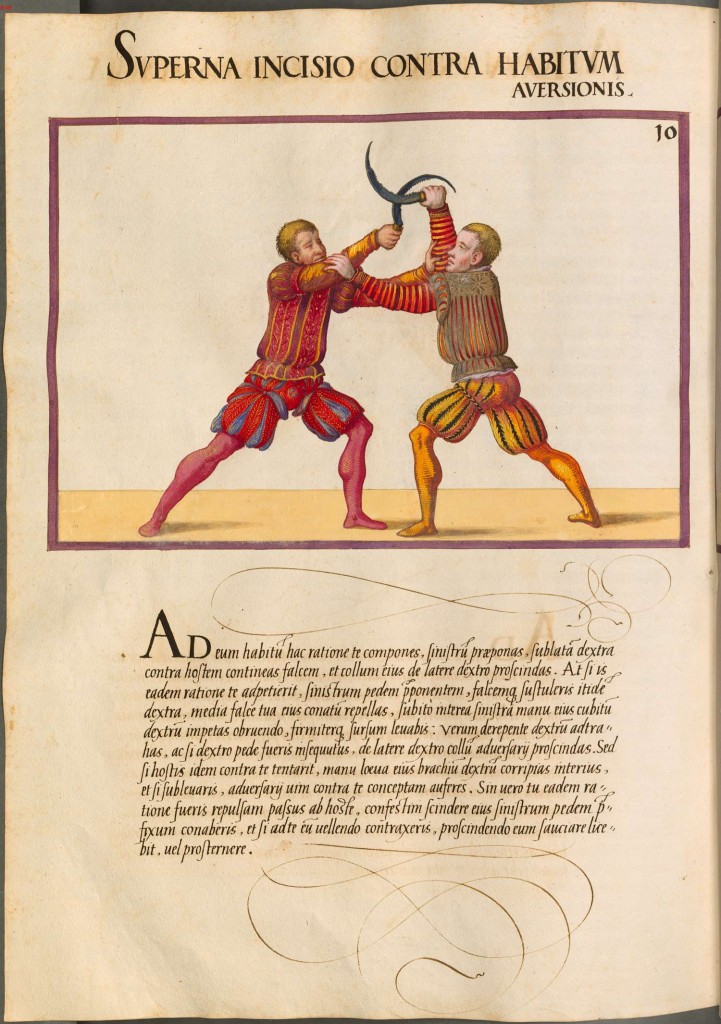 SVPERNA INCISIO CONTRA HABITVM
AVERSIONIS.
10
AD eum habitũ hac ratione te compones, sinistrũ præponas, sublatã dextra
contra hostem contineas falcem, et collum eius de latere dextro proscindas. At si is
eadem ratione te adpetierit, sinistrum pedem p̃ponentem, falcemq̃ sustuleris itidẽ
dextra, media falce tua eius conatũ repellas, subito interea sinistrã manu eius cubitũ
dextrũ impetas obruendo, firmiterq̃ sursum leuabis: verum derepente dextrũ adtra-
has, ac si dextro pede fueris insequutus, de latere dextro collũ aduersarij proscindas. Sed
si hostis idem contra te tentarit, manu loeua eius brachiũ dextrũ corripias interius,
et si subleuaris, aduersarij uim contra te conceptam auferes. Sin uero tu eadem ra-
tione fueris repulsam passus ab hoste, confestim scindere eius sinistrum pedem p̃-
fixum conaberis, et si ad te eũ uellendo contraxeris, proscindendo eum sauciare lice-
bit, uel prosternere.